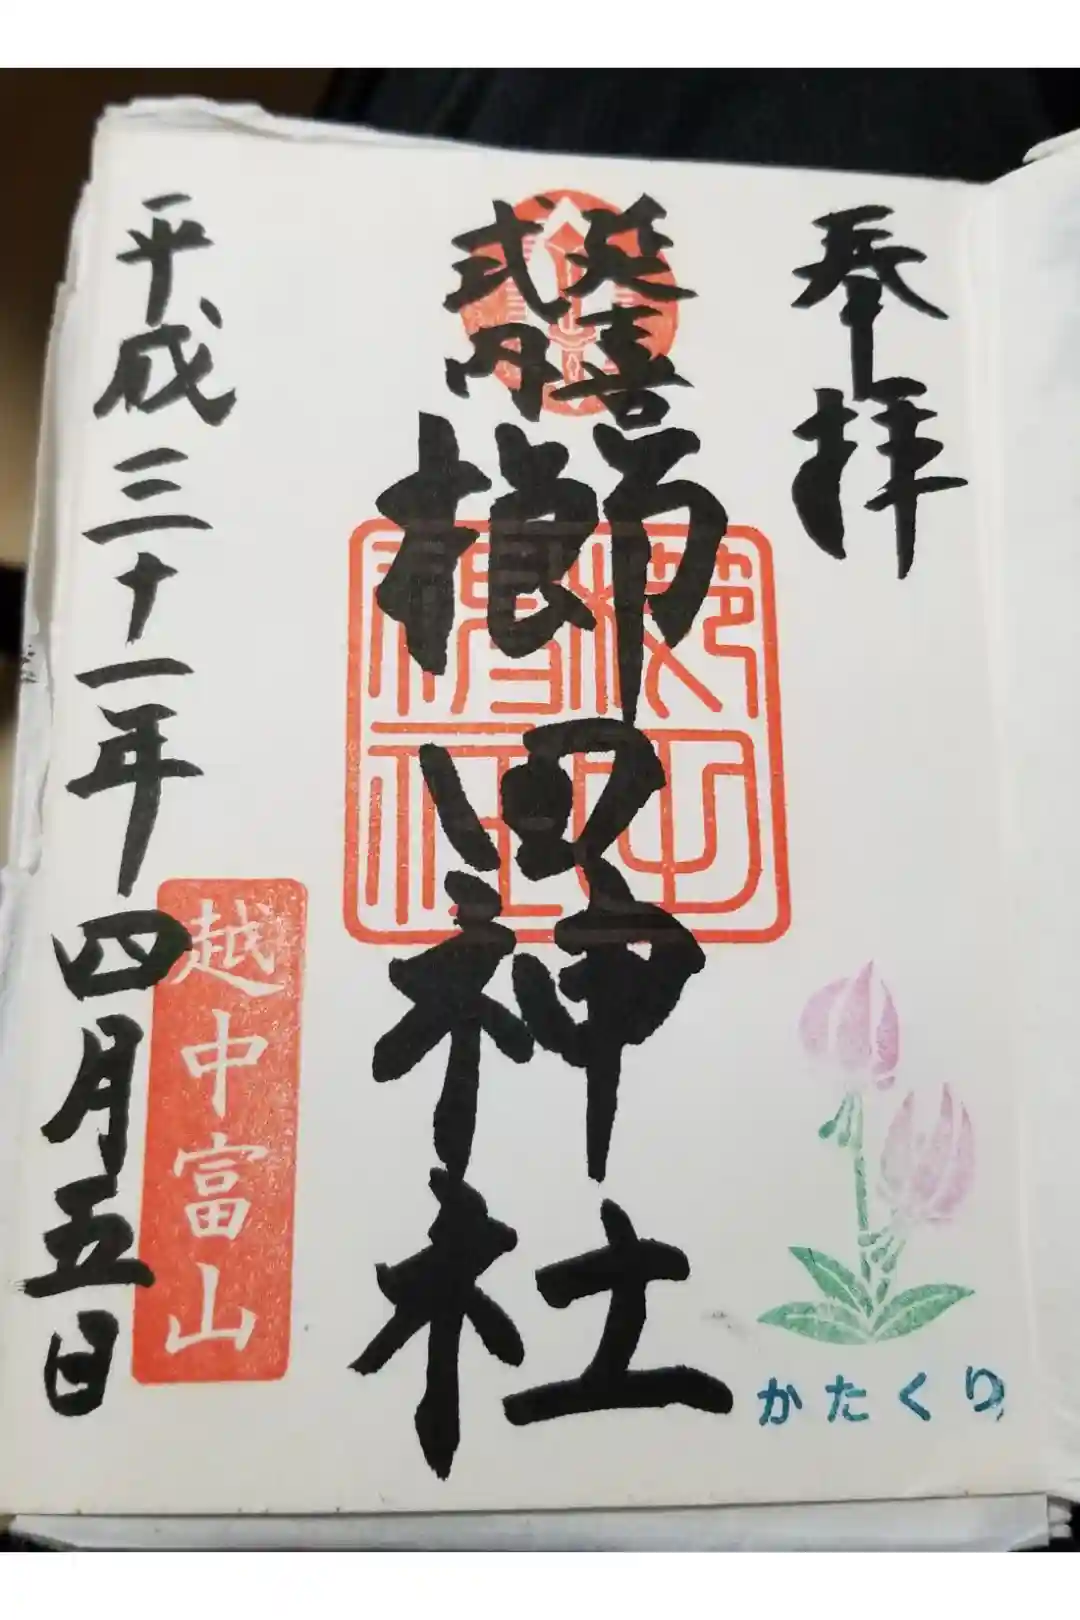 奉拝
延喜
式内
櫛田神社
櫛田
神社
平成三十一年四月五日
越中富山
かたくり